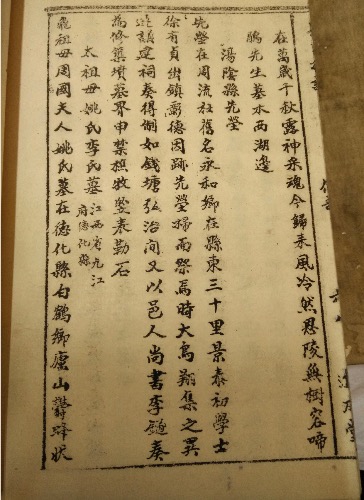 在萬歲千秋露神采魂今歸未風冷然思陵無樹容啼
鵑先生墓木西湖邊
湯陰縣先塋
先塋在周流社舊名永和鄉在縣東三十里景泰初學士
徐有貞出鎮彰德因跡先塋掃而祭焉時大鳥翔集之異
建祠奏得倒如錢塘弘治間又以邑人尚書李鐩奏
為修葺墳墓界申禁樵牧竪表勒石
太祖母姚氏李氏墓江西省九江府德化縣
祖母周國夫人姚氏墓在德化縣白鶴鄉廬山鬱峰狀